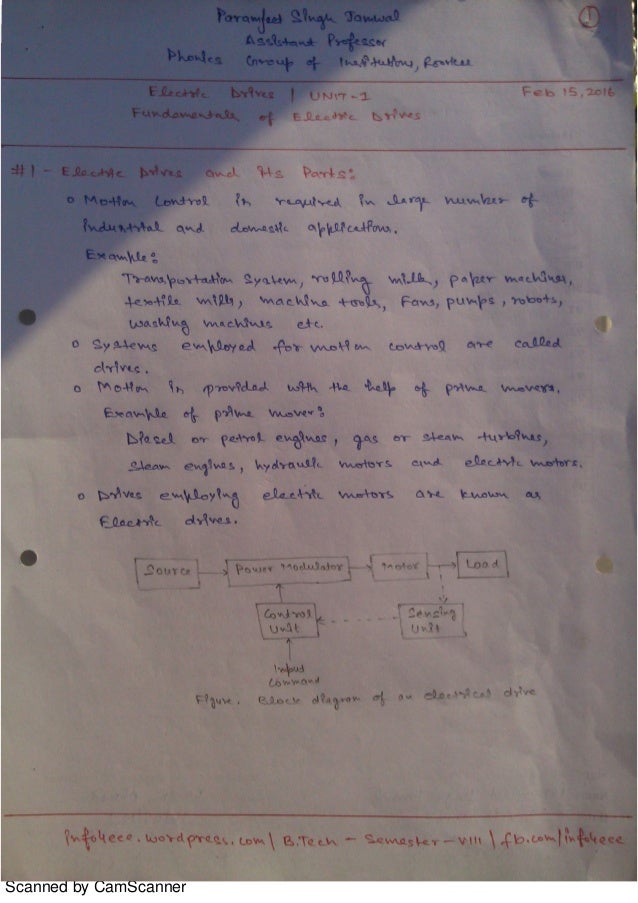 Paramjeet Singh Jamwal
1
Assistant Professor
Phonics Group of Institutions, Roorkee
Electric Drives | UNIT-1
Feb 15, 2016
Fundamentals of Electric Drives
#1 - Electric Drives and its Parts:
o Motion Control is required in large number of
industrial and domestic applications.
Example:
Transportation System, rolling mills, paper machines,
textile mills, machine tools, Fans, pumps, robots,
washing machines etc.
o Systems employed for motion control are called
drives.
o Motion is provided with the help of prime movers.
Example of prime mover:
Diesel or petrol engines, gas or steam turbines,
Steam engines, hydraulic motors and electric motors.
o Drives employing electric motors are known as
Electric drives.
Source
Power Modulator
Motor
Load
Control
Unit
Sensing
Unit
Input
Command
Figure. Block diagram of an electrical drive
info4eee.wordpress.com | B.Tech - Semester - VIII | fb.com/info4eee
Scanned by CamScanner